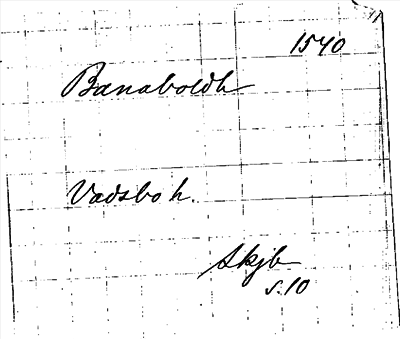 1540
Bænaboldh
Vadsbo h.
Skjb
s. 10